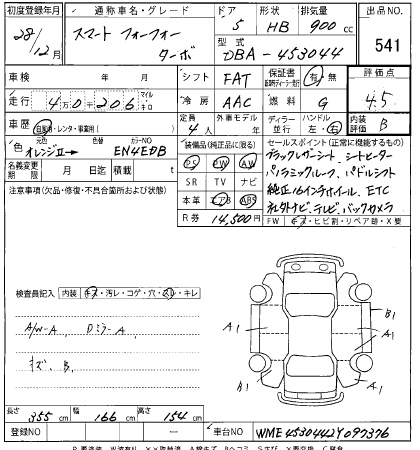 初度登録年月 通称車名・グレード ドア 形状 排気量 出品NO
28/12月 スマート フォーフォー ターボ 5 HB 900 cc 541
型式 DBA-453044
車検 年 月 シフト FAT 保証書 有・無 評価点
走行 40206 マイル キロ 冷房 AAC 燃料 G 4.5
車歴 自家用・レンタ・事業用( ) 定員 4人 外車モデル 年 ディーラー 並行 ハンドル 左・右 内装評価 B
色 オレンジII→ 色替 カラーNO EN4EDB
装備品(純正品に限る) セールスポイント(正常に機能するもの)
名義変更期限 月 日迄 積載 t
PS PW AW
ブラックレザーシート シートヒーター
注意事項(欠品・修復・不具合箇所および状態)
SR TV ナビ
パノラミックルーフ、パドルシフト
本革 エアB ABS
純正16インチホイール、ETC
R券 14,500円
社外ナビ、テレビ、バックカメラ
FW キズ・ヒビ割・リペア跡・X要
検査員記入 内装 キズ・汚レ・コゲ・穴・スレ・キレ
A/W-A Dミラー A
キズ B
A1 B1 A1 A1
長さ 355 cm 幅 166 cm 高さ 154 cm
登録NO ー 車台NO WME4530442Y097376